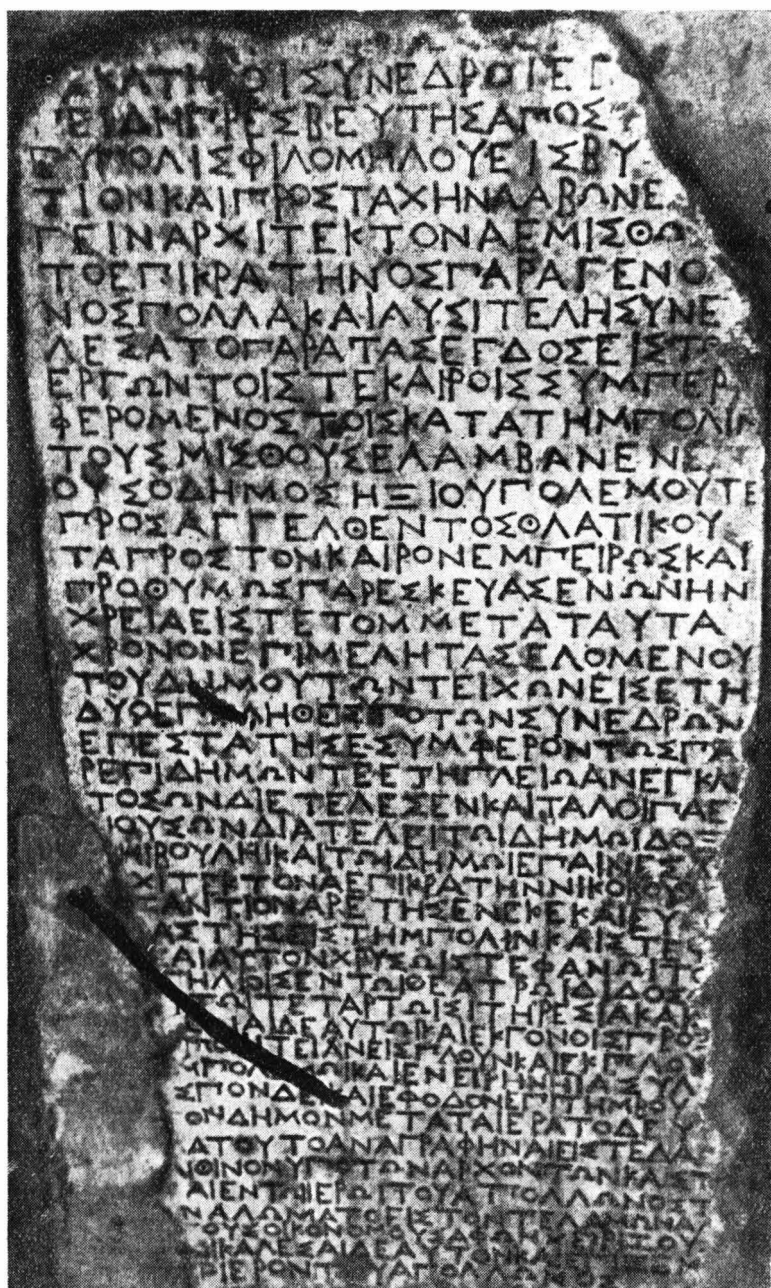 ΚΑΤΗΙΟΙΣΥΝΕΔΡΟΙΕΓ
ΕΙΔΗΠΡΕΣΒΕΥΤΗΣΑΠΟΣ
ΥΠΟΛΙΣΦΙΛΟΜΗΛΟΥΕΙΣΒΥ
ΤΙΟΝΚΑΙΠΡΟΣΤΑΧΗΝΛΑΒΩΝΕ
ΓΕΙΝΑΡΧΙΤΕΚΤΟΝΑΕΜΙΣΘΩ
ΤΟΕΠΙΚΡΑΤΗΝΟΣΠΑΡΑΓΕΝΟ
ΝΟΣΠΟΛΛΑΚΑΙΛΥΣΙΤΕΛΗΣΥΝΕ
ΛΕΣΑΤΟΠΑΡΑΤΑΣΕΓΔΟΣΕΙΣΤ
ΕΡΓΩΝΤΟΙΣΤΕΚΑΙΡΟΙΣΣΥΜΠΕΡ
ΦΕΡΟΜΕΝΟΣΤΟΙΣΚΑΤΑΤΗΜΠΟΛΙΝ
ΤΟΥΣΜΙΣΘΟΥΣΕΛΑΜΒΑΝΕΝΕ
ΟΥΣΟΔΗΜΟΣΗΞΙΟΥΠΟΛΕΜΟΥΤΕ
ΠΡΟΣΑΓΓΕΛΘΕΝΤΟΣΘΛΑΤΙΚΟΥ
ΤΑΠΡΟΣΤΟΝΚΑΙΡΟΝΕΜΠΕΙΡΩΣΚΑΙ
ΠΡΟΘΥΜΩΣΠΑΡΕΣΚΕΥΑΣΕΝΩΝΗΝ
ΧΡΕΙΑΕΙΣΤΕΤΟΜΜΕΤΑΤΑΥΤΑ
ΧΡΟΝΟΝΕΠΙΜΕΛΗΤΑΣΕΛΟΜΕΝΟΥ
ΤΟΥΔΗΜΟΥΤΩΝΤΕΙΧΩΝΕΙΣΕΤΗ
ΔΥΟΕΠΙΚΛΗΘΕΙΣΥΠΟΤΩΝΣΥΝΕΔΡΩΝ
ΕΠΕΣΤΑΤΗΣΕΣΥΜΦΕΡΟΝΤΩΣΠ
ΡΕΠΙΔΗΜΩΝΤΕΕΤΗΠΛΕΙΩΑΝΕΓΚΛ
ΤΟΣΩΝΔΙΕΤΕΛΕΣΕΝΚΑΙΤΑΛΟΙΠΑΕ
ΟΥΣΩΝΔΙΑΤΕΛΕΙΤΩΙΔΗΜΩΙΔΟΞ
ΗΙΒΟΥΛΗΙΚΑΙΤΩΙΔΗΜΩΙΕΠΑΙΝΕΣ
ΧΙΤΕΚΤΟΝΑΕΠΙΚΡΑΤΗΝΝΙΚΟΒΟΥ
ΑΝΤΙΟΝΑΡΕΤΗΣΕΝΕΚΕΚΑΙΕΥ
ΑΣΤΗΣΕΙΣΤΗΜΠΟΛΙΝΚΑΙΣΤΕ
ΑΙΑΥΤΟΝΧΡΥΣΩΙΣΤΕΦΑΝΩΙΤ
ΗΛΙΟΙΣΕΝΤΩΙΘΕΑΤΡΩΙΔΙΔΟΣ
ΤΩΙΤΕΤΑΡΤΩΙΣΙΤΗΡΕΣΙΑΚΑ
ΑΙΔΕΑΥΤΩΙΚΑΙΕΚΓΟΝΟΙΣΠΡΟ
ΠΟΛΙΤΕΙΑΝΕΙΣΠΛΟΥΝΚΑΙΕΚΠΛΟ
ΠΟΛΕΜΩΙΚΑΙΕΝΕΙΡΗΝΗΙΑΣΥΛ
ΣΠΟΝΔΕΙΚΑΙΕΦΟΔΟΝΕΠΙΤΗΜΒΟΥ
ΟΝΔΗΜΟΝΜΕΤΑΤΑΙΕΡΑΤΟΔΕ
ΑΤΟΥΤΟΑΝΑΓΡΑΦΗΝΑΙΕΙΣΤΕΛΑ
ΘΙΝΟΝΥΠΟΤΩΝΑΡΧΟΝΤΩΝΚΑΙ
ΑΙΕΝΤΩΙΙΕΡΩΙΤΟΥΑΠΟΛΛΩΝΟΣ
ΝΑΛΩΜΑ
ΚΑΛΕΣΑΙΔΕΑΥΤΟΝ
ΙΕΡΟΝΤΟΥΑΠΟΛΛΩΝΟΣ